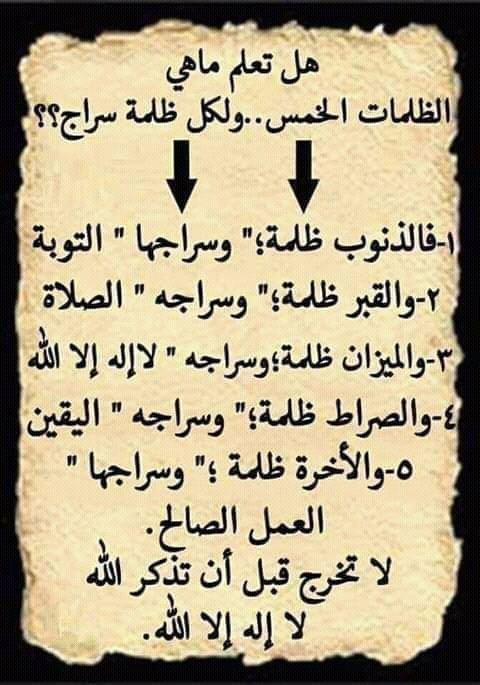 هل تعلم ماهي
الظلمات الخمس..ولكل ظلمة سراج؟؟
١-فالذنوب ظلمة؛" وسراجها " التوبة
٢-والقبر ظلمة؛" وسراجه " الصلاة
٣-والميزان ظلمة؛وسراجه " لاإله إلا الله
٤-والصراط ظلمة؛" وسراجه " اليقين
٥-والأخرة ظلمة ؛" وسراجها "
العمل الصالح.
لا تخرج قبل أن تذكر الله
لا إله إلا الله.